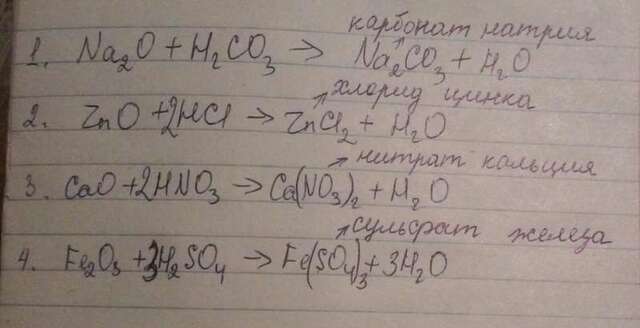 карбонат натрия
1. Na2O + H2CO3 → Na2CO3 + H2O
хлорид цинка
2. ZnO + 2HCl → ZnCl2 + H2O
нитрат кальция
3. CaO + 2HNO3 → Ca(NO3)2 + H2O
сульфат железа
4. Fe2O3 + 3H2SO4 → Fe(SO4)3 + 3H2O